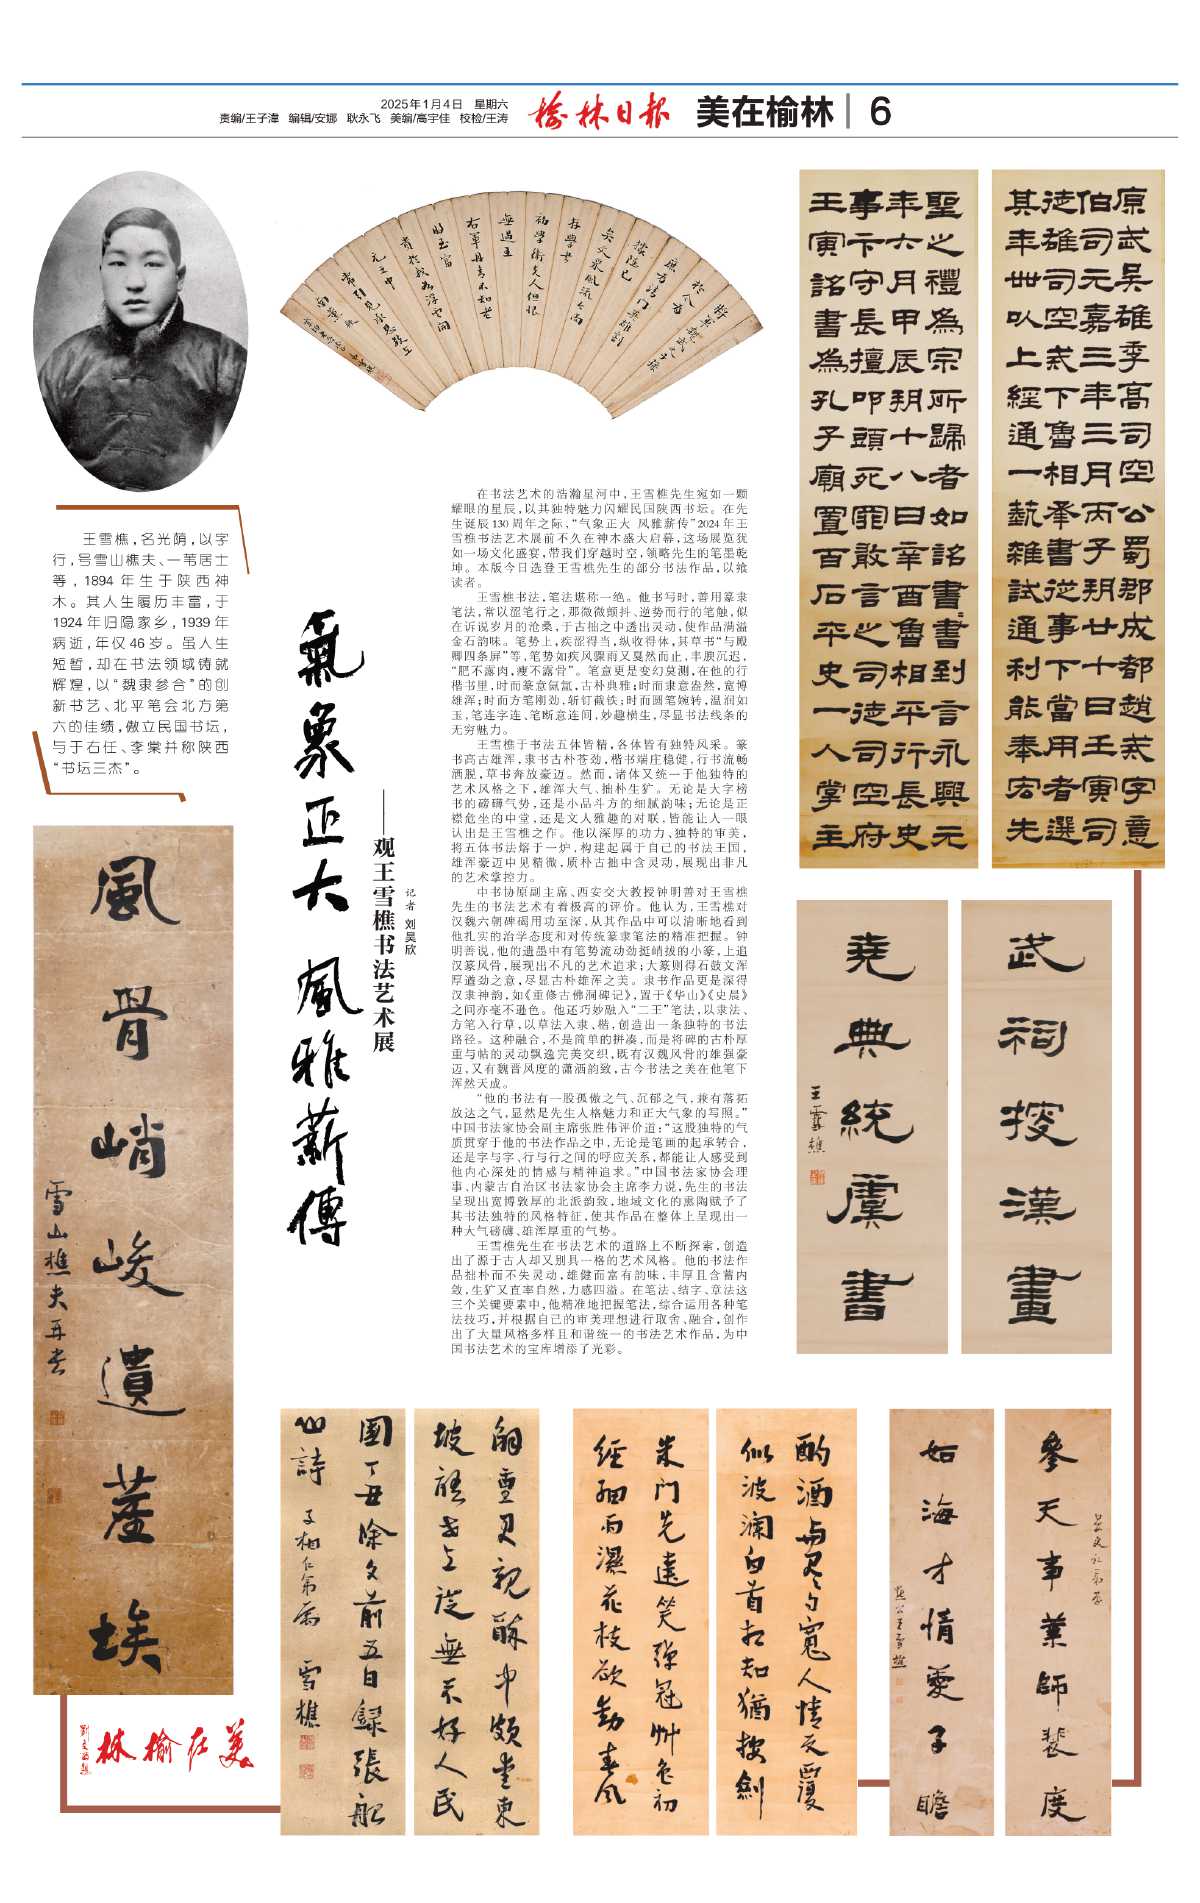 2025年1月4日 星期六
责编/王子潼 编辑/安娜 耿永飞 美编/高宇佳 校检/王涛
榆林日报
美在榆林
6
王雪樵，名光荫，以字
行，号雪山樵夫、一苇居士
等，1894 年生于陕西神
木。其人生履历丰富，于
1924 年归隐家乡，1939 年
病逝，年仅 46 岁。虽人生
短暂，却在书法领域铸就
辉煌，以“魏隶参合”的创
新书艺、北平笔会北方第
六的佳绩，傲立民国书坛，
与于右任、李棠并称陕西
“书坛三杰”。
氣象正大 風雅薪傳
——观王雪樵书法艺术展
记者 刘昊欣
在书法艺术的浩瀚星河中，王雪樵先生宛如一颗
耀眼的星辰，以其独特魅力闪耀民国陕西书坛。在先
生诞辰 130 周年之际，“气象正大 风雅薪传”2024 年王
雪樵书法艺术展前不久在神木盛大启幕，这场展览犹
如一场文化盛宴，带我们穿越时空，领略先生的笔墨乾
坤。本版今日选登王雪樵先生的部分书法作品，以飨
读者。
王雪樵书法，笔法堪称一绝。他书写时，善用篆隶
笔法，常以涩笔行之，那微微颤抖、逆势而行的笔触，似
在诉说岁月的沧桑，于古拙之中透出灵动，使作品满溢
金石韵味。笔势上，疾涩得当，纵收得体，其草书“与殿
卿四条屏”等，笔势如疾风骤雨又戛然而止，丰腴沉迟，
“肥不露肉，瘦不露骨”。笔意更是变幻莫测，在他的行
楷书里，时而篆意氤氲，古朴典雅；时而隶意盎然，宽博
雄浑；时而方笔刚劲，斩钉截铁；时而圆笔婉转，温润如
玉，笔连字连、笔断意连间，妙趣横生，尽显书法线条的
无穷魅力。
王雪樵于书法五体皆精，各体皆有独特风采。篆
书高古雄浑，隶书古朴苍劲，楷书端庄稳健，行书流畅
洒脱，草书奔放豪迈。然而，诸体又统一于他独特的
艺术风格之下，雄浑大气、拙朴生犷。无论是大字榜
书的磅礴气势，还是小品斗方的细腻韵味；无论是正
襟危坐的中堂，还是文人雅趣的对联，皆能让人一眼
认出是王雪樵之作。他以深厚的功力、独特的审美，
将五体书法熔于一炉，构建起属于自己的书法王国，
雄浑豪迈中见精微，质朴古拙中含灵动，展现出非凡
的艺术掌控力。
中书协原副主席、西安交大教授钟明善对王雪樵
先生的书法艺术有着极高的评价。他认为，王雪樵对
汉魏六朝碑碣用功至深，从其作品中可以清晰地看到
他扎实的治学态度和对传统篆隶笔法的精准把握。钟
明善说，他的遗墨中有笔势流动劲挺峭拔的小篆，上追
汉篆风骨，展现出不凡的艺术追求；大篆则得石鼓文浑
厚遒劲之意，尽显古朴雄浑之美。隶书作品更是深得
汉隶神韵，如《重修古佛洞碑记》，置于《华山》《史晨》
之间亦毫不逊色。他还巧妙融入“二王”笔法，以隶法、
方笔入行草，以草法入隶、楷，创造出一条独特的书法
路径。这种融合，不是简单的拼凑，而是将碑的古朴厚
重与帖的灵动飘逸完美交织，既有汉魏风骨的雄强豪
迈，又有魏晋风度的潇洒韵致，古今书法之美在他笔下
浑然天成。
“他的书法有一股孤傲之气、沉郁之气，兼有落拓
放达之气，显然是先生人格魅力和正大气象的写照。”
中国书法家协会副主席张胜伟评价道：“这股独特的气
质贯穿于他的书法作品之中，无论是笔画的起承转合，
还是字与字、行与行之间的呼应关系，都能让人感受到
他内心深处的情感与精神追求。”中国书法家协会理
事、内蒙古自治区书法家协会主席李力说，先生的书法
呈现出宽博敦厚的北派韵致，地域文化的熏陶赋予了
其书法独特的风格特征，使其作品在整体上呈现出一
种大气磅礴、雄浑厚重的气势。
王雪樵先生在书法艺术的道路上不断探索，创造
出了源于古人却又别具一格的艺术风格。他的书法作
品拙朴而不失灵动，雄健而富有韵味，丰厚且含蓄内
敛，生犷又直率自然，力感四溢。在笔法、结字、章法这
三个关键要素中，他精准地把握笔法，综合运用各种笔
法技巧，并根据自己的审美理想进行取舍、融合，创作
出了大量风格多样且和谐统一的书法艺术作品，为中
国书法艺术的宝库增添了光彩。
原武吴雄季高司空公蜀郡成都趙戒字意
伯司元嘉三年三月丙子朔廿十日壬寅司
徒雄司空戒下魯相承書從事下當用者選
其年卌以上經通一藝雜試通利能奉宏先
聖之禮為宗所歸者如詔書書到言永興元
年六月甲辰朔十八日辛酉魯相平行長史
事卞守長擅叩頭死罪敢言之司徒司空府
壬寅詔書為孔子廟置百石卒史一人掌主
武祠挍漢畫
堯典統虞書
王雪樵
風骨峭峻遺塵埃
雪山樵夫再书
坡
無不好人民
國丁丑除夕前五日録張船
山詩
雪樵
酌酒与君君自寬人情反覆
似波瀾白首相知猶按劍
朱門先達笑弹冠艸色初
經細雨濕花枝欲動春風
參天事業師裴度
如海才情愛子瞻
王雪樵
美在榆林